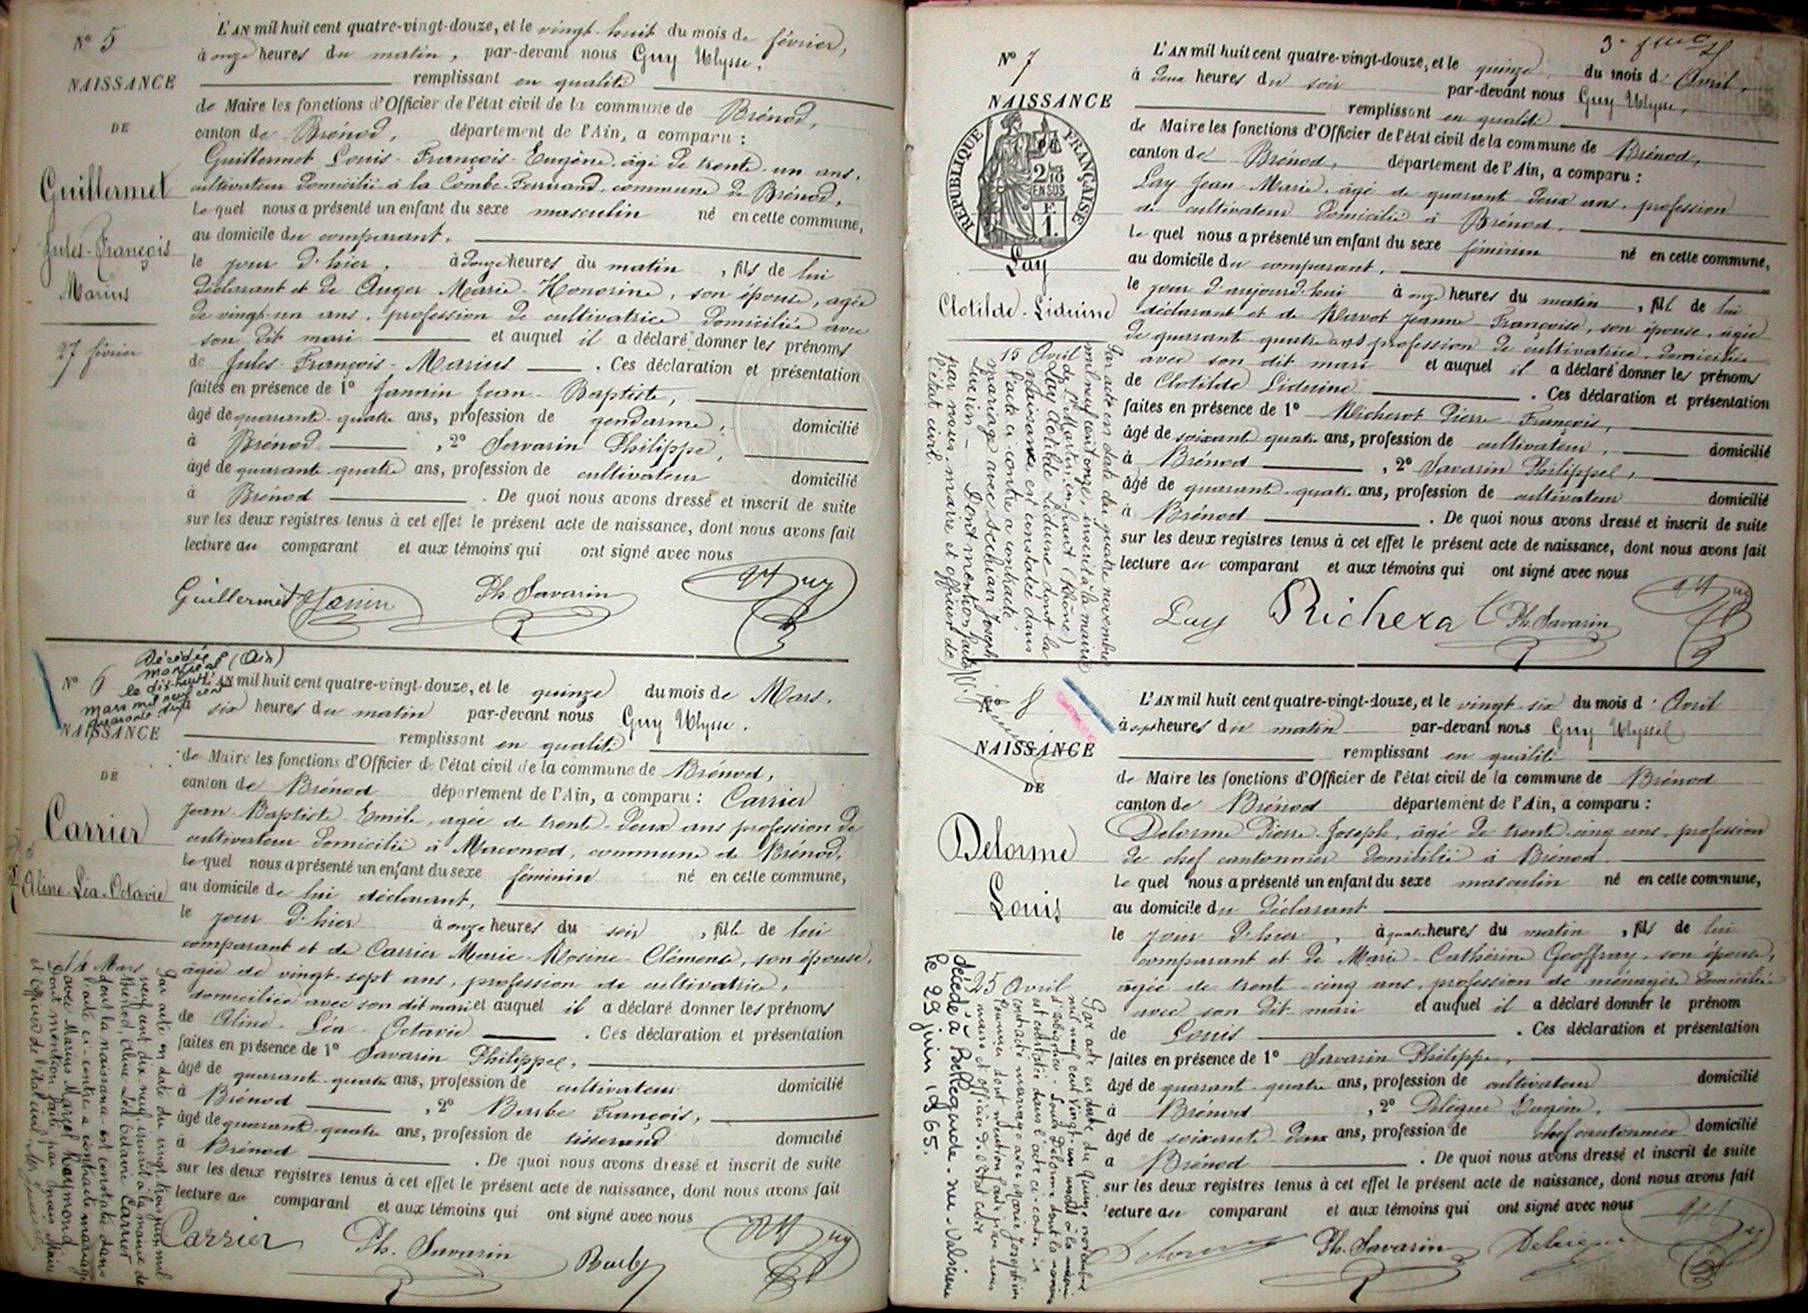 N° 5
NAISSANCE
DE
Guillermet
Jules-François
Marius
27 février
L'AN mil huit cent quatre-vingt-douze, et le vingt-huit du mois de février,
à onze heures du matin, par-devant nous Guy Ulysse,
remplissant en qualité
de Maire les fonctions d'Officier de l'état civil de la commune de Brénod,
canton de Brénod, département de l'Ain, a comparu :
Guillermet Louis-François-Eugène, âgé de trente-un ans,
cultivateur domicilié à la Combe-Ferrand, commune de Brénod,
Lequel nous a présenté un enfant du sexe masculin né en cette commune,
au domicile du comparant,
le jour d'hier, à douze heures du matin, fils de lui
déclarant et de Auger Marie-Honorine, son épouse, agée
de vingt-un ans, profession de cultivatrice domiciliée avec
son dit mari et auquel il a déclaré donner les prénoms
de Jules-François-Marius. Ces déclaration et présentation
faites en présence de 1° Jannin Jean-Baptiste,
âgé de quarante-quatre ans, profession de gendarme, domicilié
à Brénod, 2° Savarin Philippe,
âgé de quarante-quatre ans, profession de cultivateur domicilié
à Brénod. De quoi nous avons dressé et inscrit de suite
sur les deux registres tenus à cet effet le présent acte de naissance, dont nous avons fait
lecture au comparant et aux témoins qui ont signé avec nous
Guillermet Janin Ph. Savarin Guy
Décédée
Montréal (Ain)
le dix-huit
mars mil neuf cent
quarante-sept
N° 6
NAISSANCE
DE
Carrier
Aline-Léa-Octavie
14 Mars
Par acte en date du vingt trois juin mil
neuf cent dix neuf inscrit à la mairie de
Brénod, Aline Léa Octavie Carrier
dont la naissance est constatée dans
l'acte ci-contre a contracté mariage
avec Marius Marcel Raymond
Dont mention faite par nous Maire
et Officier de l'état civil
L'AN mil huit cent quatre-vingt-douze, et le quinze du mois de Mars,
six heures du matin par-devant nous Guy Ulysse,
remplissant en qualité
de Maire les fonctions d'Officier de l'état civil de la commune de Brénod,
canton de Brénod département de l'Ain, a comparu : Carrier
Jean-Baptiste Emile, agée de trente-deux ans profession de
cultivateur domicilié à Maconod, commune de Brénod,
Lequel nous a présenté un enfant du sexe féminin né en cette commune,
au domicile de lui déclarant,
le jour d'hier à onze heures du soir, fille de lui
comparant et de Carrier Marie-Rosine-Clémence, son épouse,
âgée de vingt-sept ans, profession de cultivatrice,
domiciliée avec son dit mari et auquel il a déclaré donner les prénoms
de Aline-Léa-Octavie. Ces déclaration et présentation
faites en présence de 1° Savarin Philippe,
âgé de quarante-quatre ans, profession de cultivateur domicilié
à Brénod, 2° Barbe François,
âgé de quarante-quatre ans, profession de tisserand domicilié
à Brénod. De quoi nous avons dressé et inscrit de suite
sur les deux registres tenus à cet effet le présent acte de naissance, dont nous avons fait
lecture au comparant et aux témoins qui ont signé avec nous
Carrier Ph. Savarin Barbe Guy
N° 7
NAISSANCE
RÉPUBLIQUE FRANÇAISE
2/10
EN SUS
F.
1.
Lay
Clotilde-Liduine
15 Avril
Par acte en date du quatre novembre
mil neuf cent onze, inscrit à la mairie
de St Martin en haut (Rhône)
Lay Clotilde Liduine dont la
naissance est constatée dans
l'acte ci-contre a contracté
mariage avec Joseph
Lucien - Dont mention faite
par nous, maire et officier de
l'état civil.
L'AN mil huit cent quatre-vingt-douze, et le quinze du mois d'Avril,
à deux heures du soir par-devant nous Guy Ulysse,
remplissant en qualité
de Maire les fonctions d'Officier de l'état civil de la commune de Brénod,
canton de Brénod, département de l'Ain, a comparu :
Lay Jean-Marie, âgé de quarante deux ans, profession
de cultivateur domicilié à Brénod,
Lequel nous a présenté un enfant du sexe féminin né en cette commune,
au domicile du comparant,
le jour d'aujourd'hui à onze heures du matin, fille de lui
déclarant et de Jeanne-Françoise, son épouse, agée
de quarante-quatre ans profession de cultivatrice, domiciliée
avec son dit mari et auquel il a déclaré donner les prénoms
de Clotilde Liduine. Ces déclaration et présentation
faites en présence de 1° Pierre-François,
âgé de soixante quatre ans, profession de cultivateur, domicilié
à Brénod, 2° Savarin Philippe,
âgé de quarante-quatre ans, profession de cultivateur domicilié
à Brénod. De quoi nous avons dressé et inscrit de suite
sur les deux registres tenus à cet effet le présent acte de naissance, dont nous avons fait
lecture au comparant et aux témoins qui ont signé avec nous
Lay Richera Ph. Savarin Guy
8
NAISSANCE
DE
Delorme
Louis
25 Avril
Par acte en date du quinze novembre
mil neuf cent vingt-un inscrit à la mairie
Louis Delorme dont la naissance
est constatée dans l'acte ci-contre a
contracté mariage avec Marie Joséphine
dont mention faite par nous
maire et officier de l'état civil
décédé à Bellegarde-sur-Valserine
le 29 juin 1965.
L'AN mil huit cent quatre-vingt-douze, et le vingt-six du mois d'Avril
à sept heures du matin par-devant nous Guy Ulysse
remplissant en qualité
de Maire les fonctions d'Officier de l'état civil de la commune de Brénod
canton de Brénod département de l'Ain, a comparu :
Delorme Pierre-Joseph, âgé de trente-cinq ans, profession
de chef cantonnier domicilié à Brénod
Lequel nous a présenté un enfant du sexe masculin né en cette commune,
au domicile du déclarant
le jour d'hier, à quatre heures du matin, fils de lui
comparant et de Marie-Cathérine Geoffray, son épouse,
agée de trente-cinq ans, profession de ménagère domiciliée
avec son dit mari et auquel il a déclaré donner le prénom
de Louis. Ces déclaration et présentation
faites en présence de 1° Savarin Philippe,
âgé de quarante-quatre ans, profession de cultivateur domicilié
à Brénod, 2° Eugène,
âgé de soixante deux ans, profession de chef cantonnier domicilié
à Brénod. De quoi nous avons dressé et inscrit de suite
sur les deux registres tenus à cet effet le présent acte de naissance, dont nous avons fait
lecture au comparant et aux témoins qui ont signé avec nous
Delorme Ph. Savarin Guy